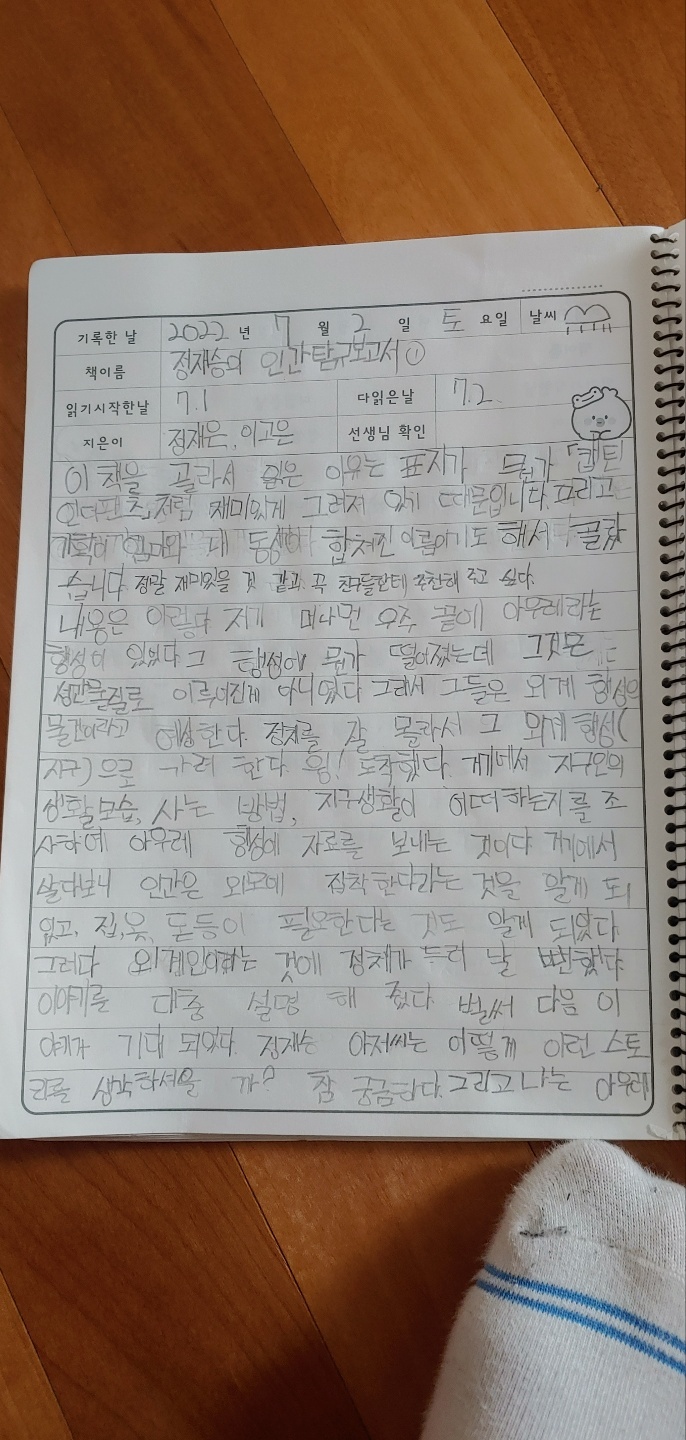 기록한 날 2022 년 7 월 2 일 토 요일 날씨
책이름 정재승의 인간탐구보고서①
읽기시작한날 7.1 다읽은날 7.2
지은이 정재은, 이고은 선생님 확인
이 책을 골라서 읽은 이유는 표지가 뭔가 「캡틴
언더팬츠」처럼 재미있게 그려져 있기 때문입니다. 그리고
기획이 엄마와 내 동생이 합쳐진 이름이기도 해서 골랐
습니다. 정말 재미있을 것 같과 꼭 친구들한테 추천해 주고 싶다.
내용은 이렇다 저기 머나먼 우주 끝에 아우레라는
행성이 있었다 그 행성에 뭔가 떨어졌는데 그것은
물질로 이루어진게 아니였다 그래서 그들은 외계 행성의
물건이라고 예상한다. 정체를 잘 몰라서 그 외계 행성(
지구)으로 가려 한다. 윙! 도착했다. 거기에서 지구인의
생활모습, 사는 방법, 지구생활이 어떠하는지를 조
사하여 아우레 행성에 자료를 보내는 것이다 거기에서
살다보니 인간은 외모에 집착한다라는 것을 알게 되
었고, 집,옷, 돈등이 필요한다는 것도 알게 되었다.
그러다 외계인이라는 것에 정체가 드러 날 뻔했다.
이야기를 대충 설명 해 줬다. 벌써 다음 이
야기가 기대 되었다. 정재승 아저씨는 어떻게 이런 스토
리를 생각하셔을 까? 참 궁금하다. 그리고 나는 아우레